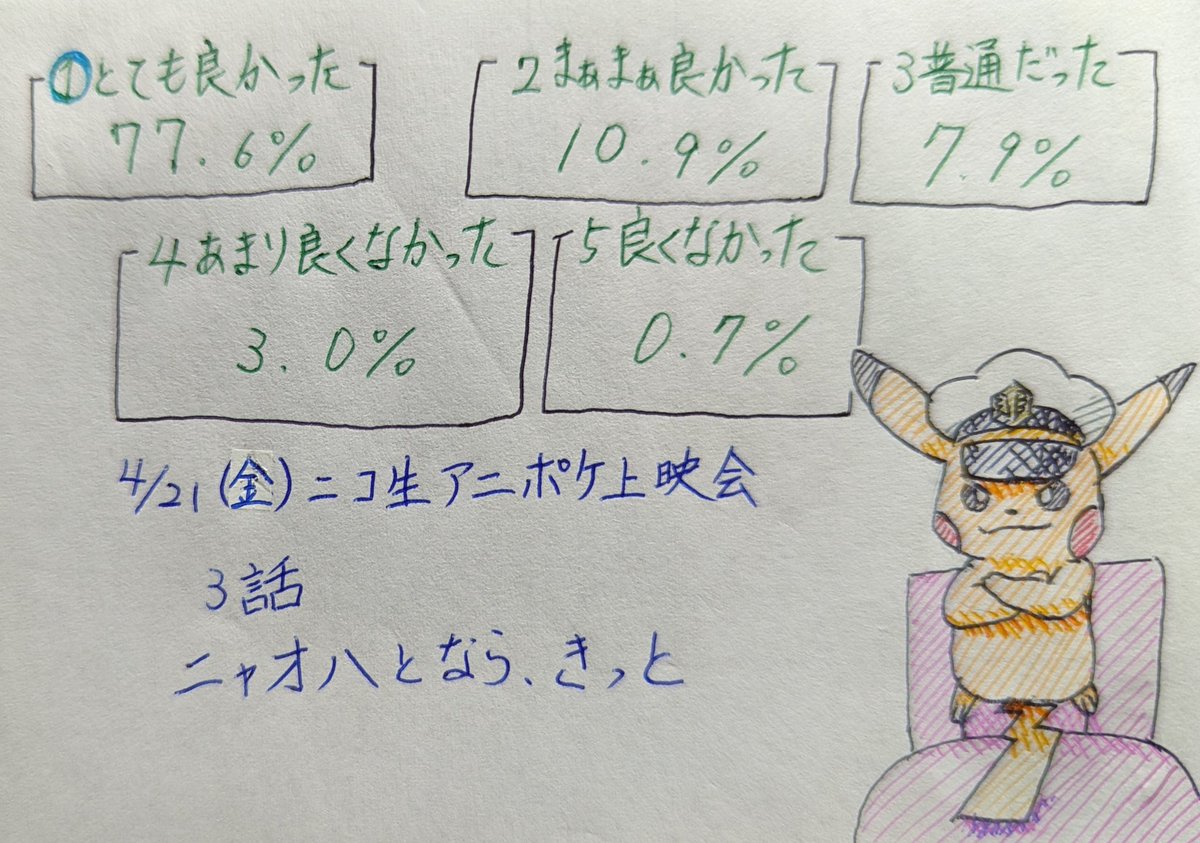 ①とても良かった
77.6%
2まぁまぁ良かった
10.9%
3普通だった
7.9%
4あまり良くなかった
3.0%
5良くなかった
0.7%
4/21(金)ニコ生アニポケ上映会
3話
ニャオハとなら、きっと